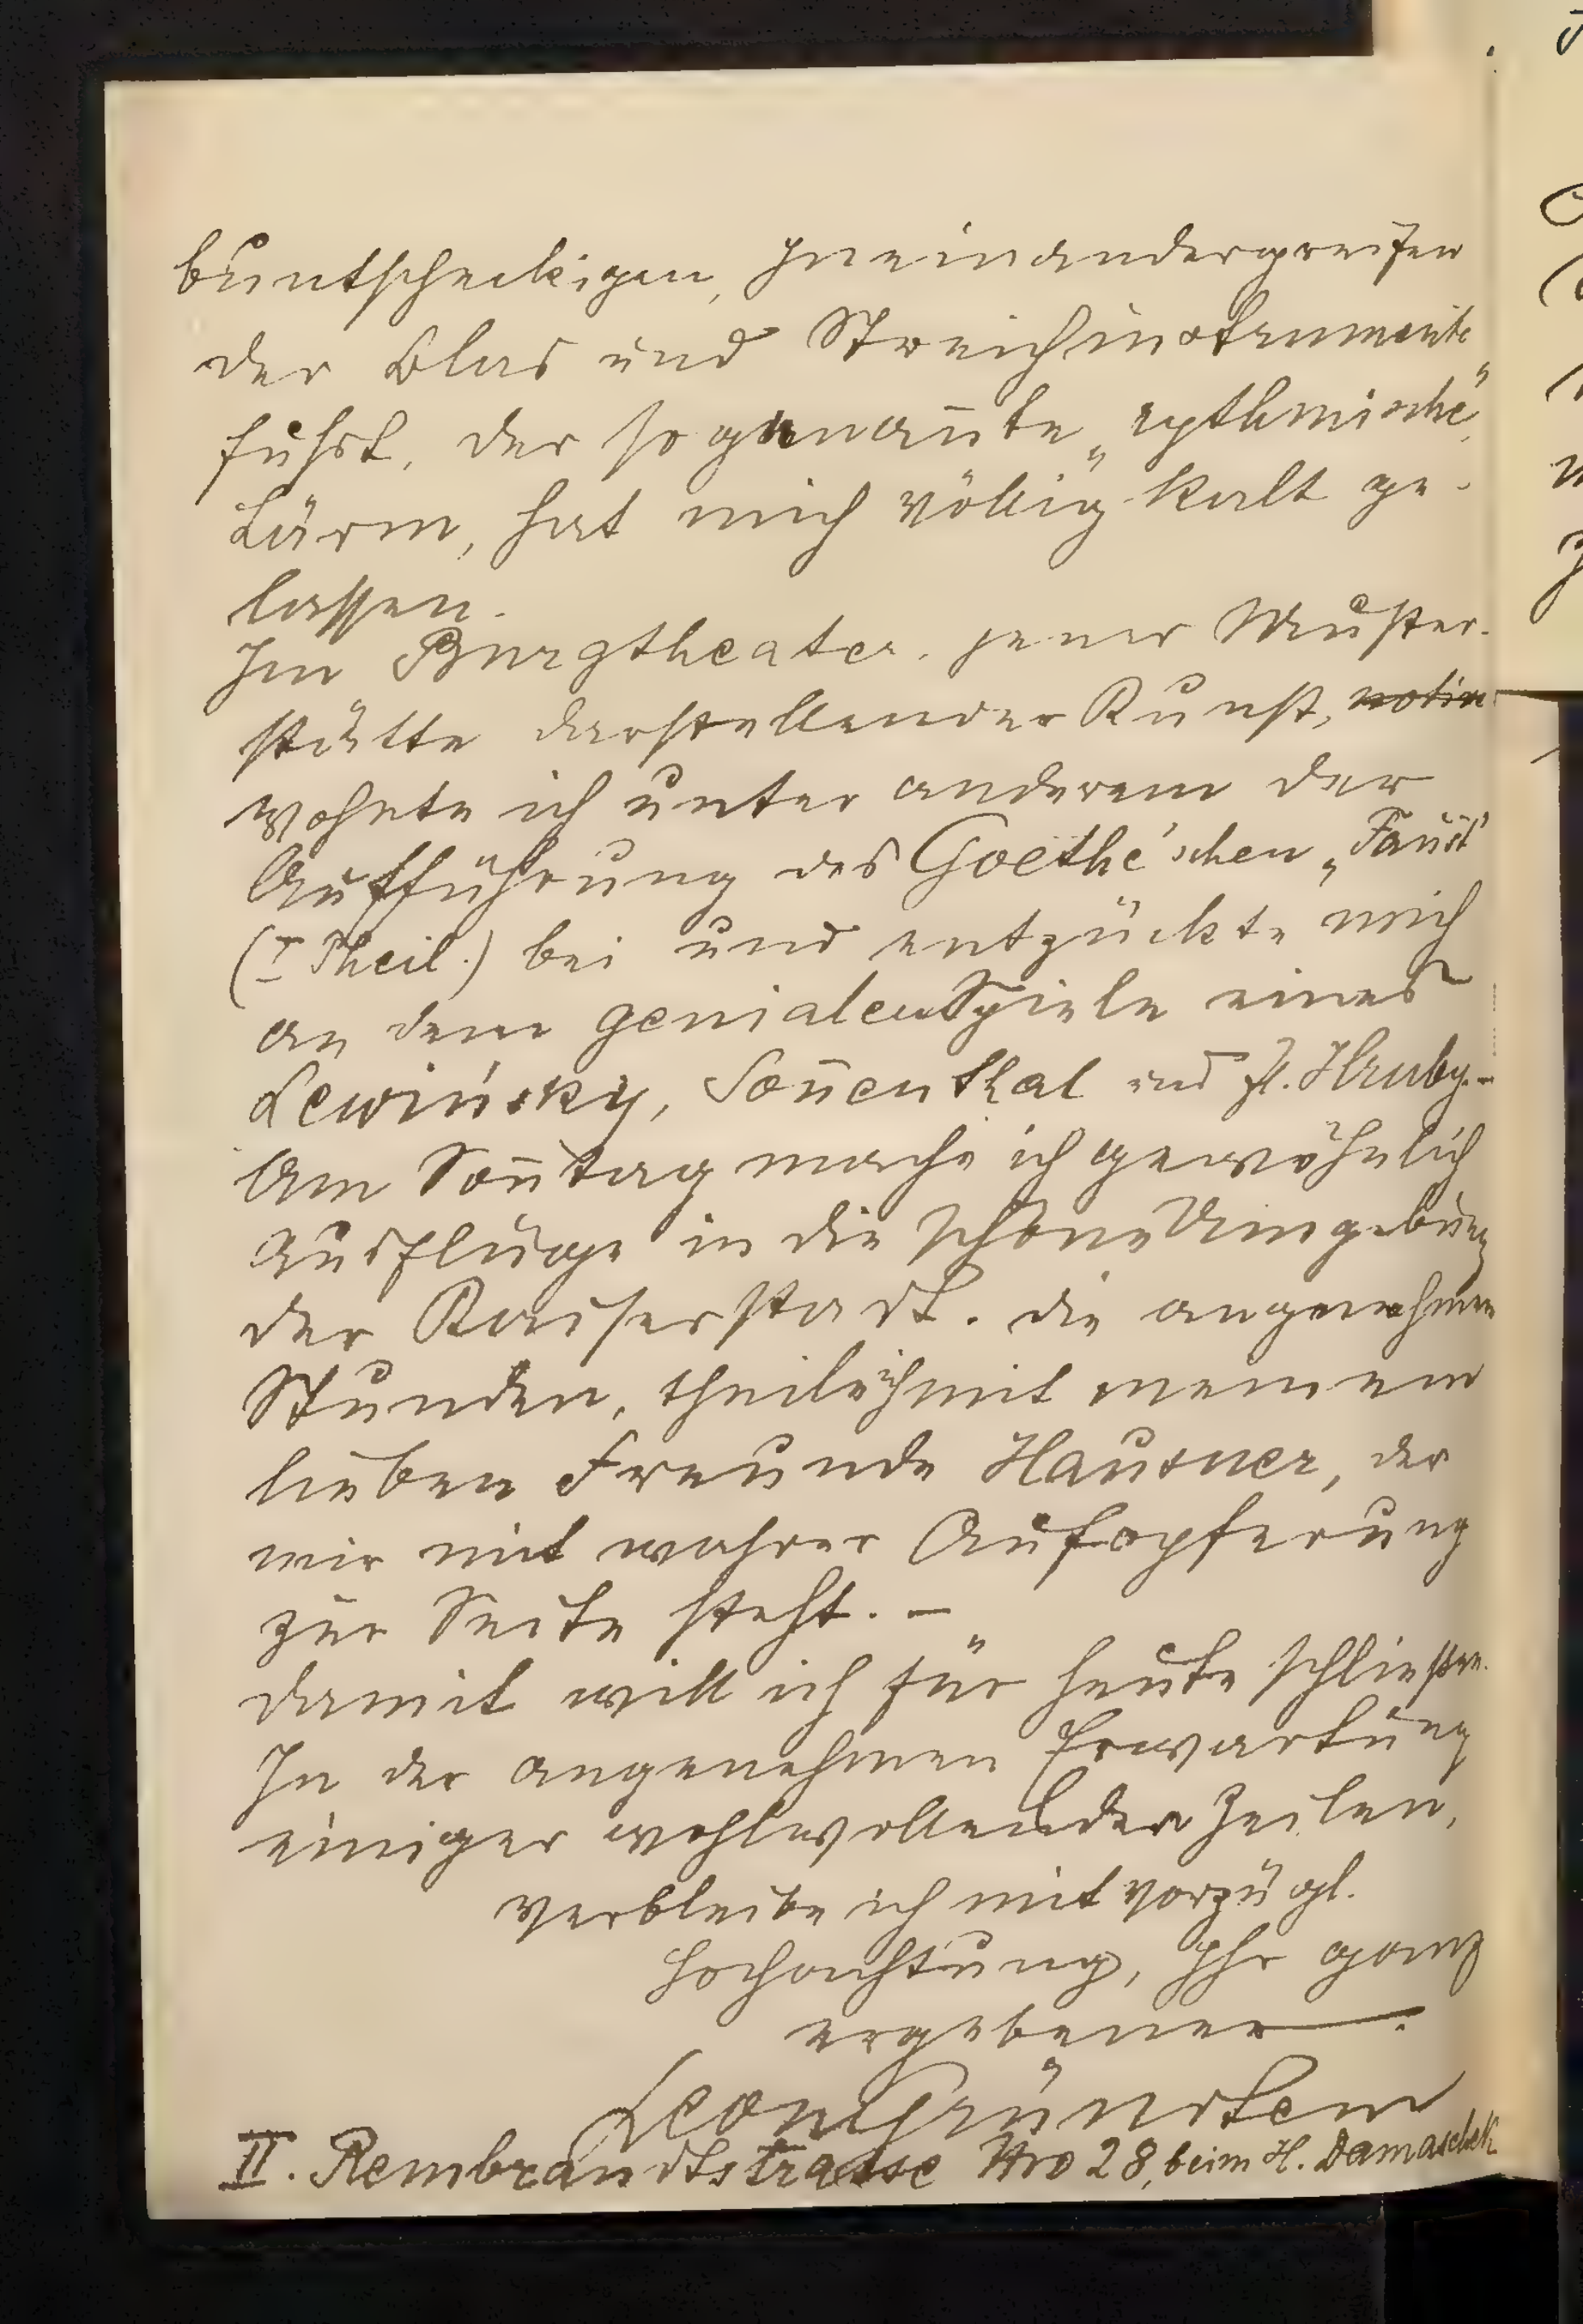 buntscheckigen, Ineinandergreifen
der Blas und Streichinstrumente
führt, der sogenan̄te „rythmische“
Lärm, hat mich völlig kalt ge-
lassen.
Im Burgtheater, jener Muster-
stätte darstellender Kunst,
wohnte ich unter anderem der
Aufführung des Goethe'schen „Faust“
(I Theil.) bei und entzückte mich
an dem genialen Spiele eines
Lewinsky, Son̄enthal und Fl. Hruby.-
Am Son̄tag mache ich gewöhnlich
Ausflüge in die schöne Umgebung
der Kaiserstadt. die angenehmen
Stunden, theile ich mit meinem
lieben Freunde Hausner, der
mir mit wahrer Aufopferung
zur Seite steht. –
damit will ich für heute schließen.
In der angenehmen Erwartung
einiger wohlwollender Zeilen,
verbleibe ich mit vorzügl.
Hochachtung, Ihr ganz
ergebener
Leon Grünstein
II. Rembrandtstrasse Nro 28, beim H. Damaschek